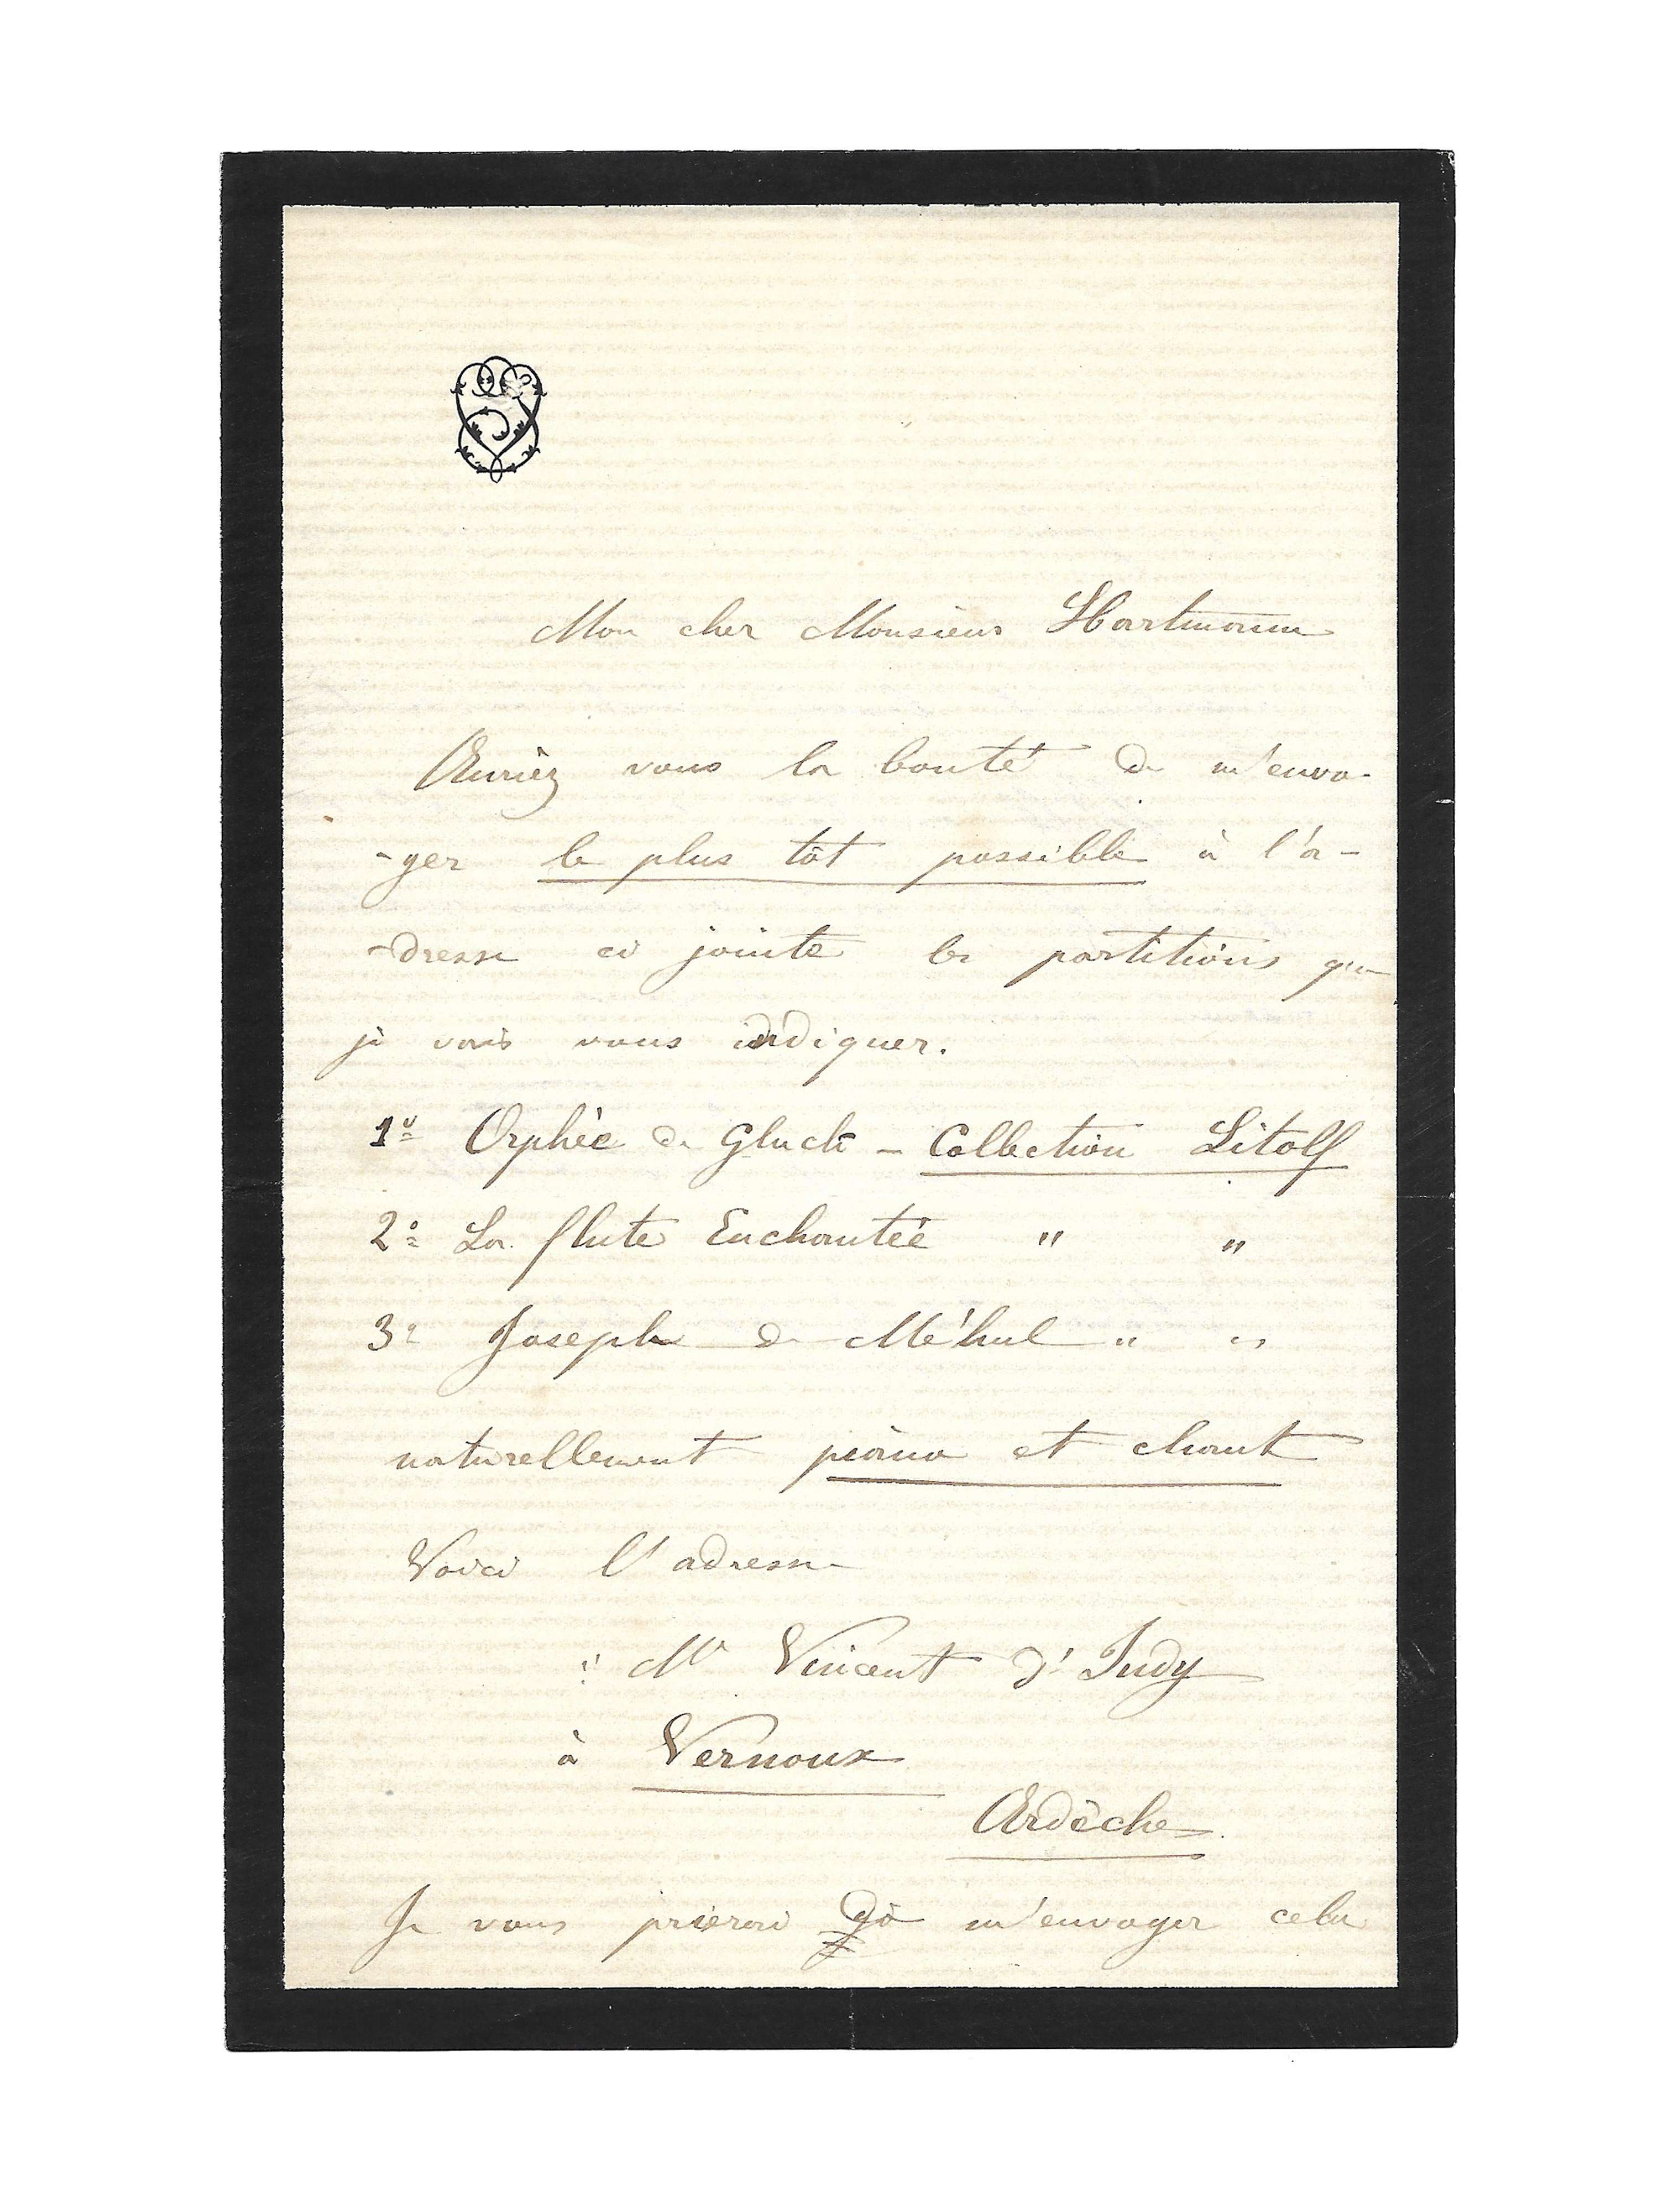 Mon cher Monsieur Hartmann
Auriez vous la bonté de m'envo-
-yer le plus tôt possible à l'a-
-dresse ci jointe les partitions que
je vais vous indiquer.
1º Orphée de Gluck - Collection Litolf
2º La flute Enchantée " "
3º Joseph de Méhul " "
naturellement piano et chant
Voici l'adresse
à Mr Vincent d'Indy
à Vernoux
Ardèche
Je vous prierai de m'envoyer cela